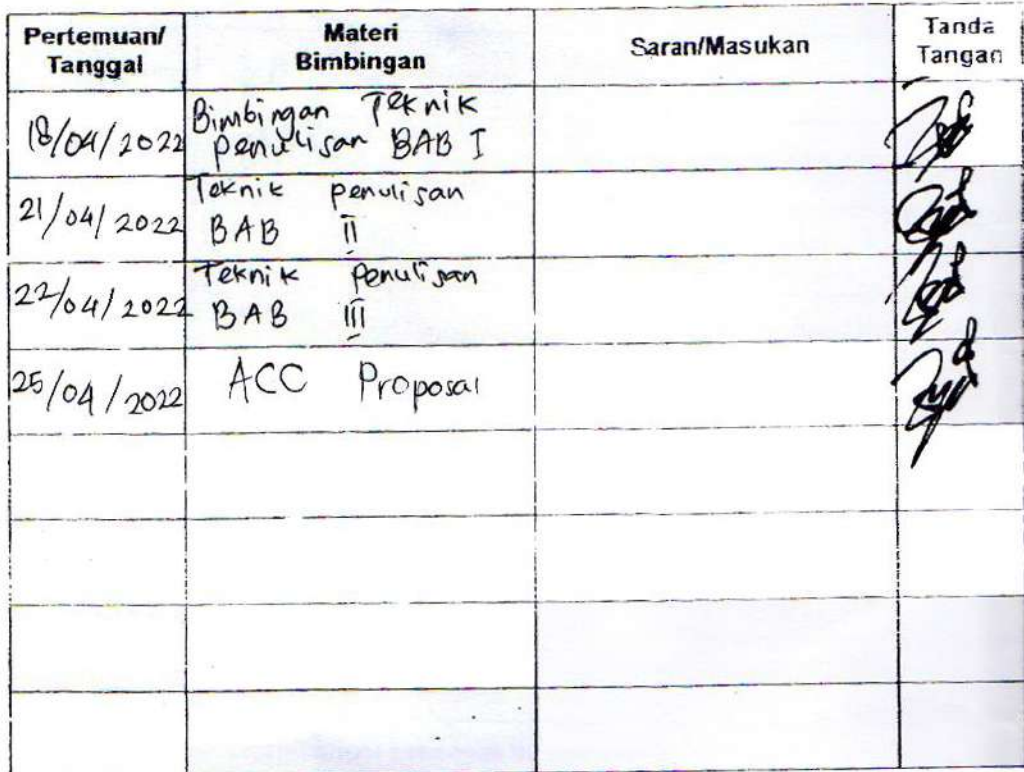 Pertemuan/
Tanggal
Materi
Bimbingan
Saran/Masukan
Tanda
Tangan
18/04/2022
Bimbingan Teknik
penulisan BAB I
21/04/2022
Teknik penulisan
BAB II
22/04/2022
Teknik penulisan
BAB III
25/04/2022
ACC Proposal